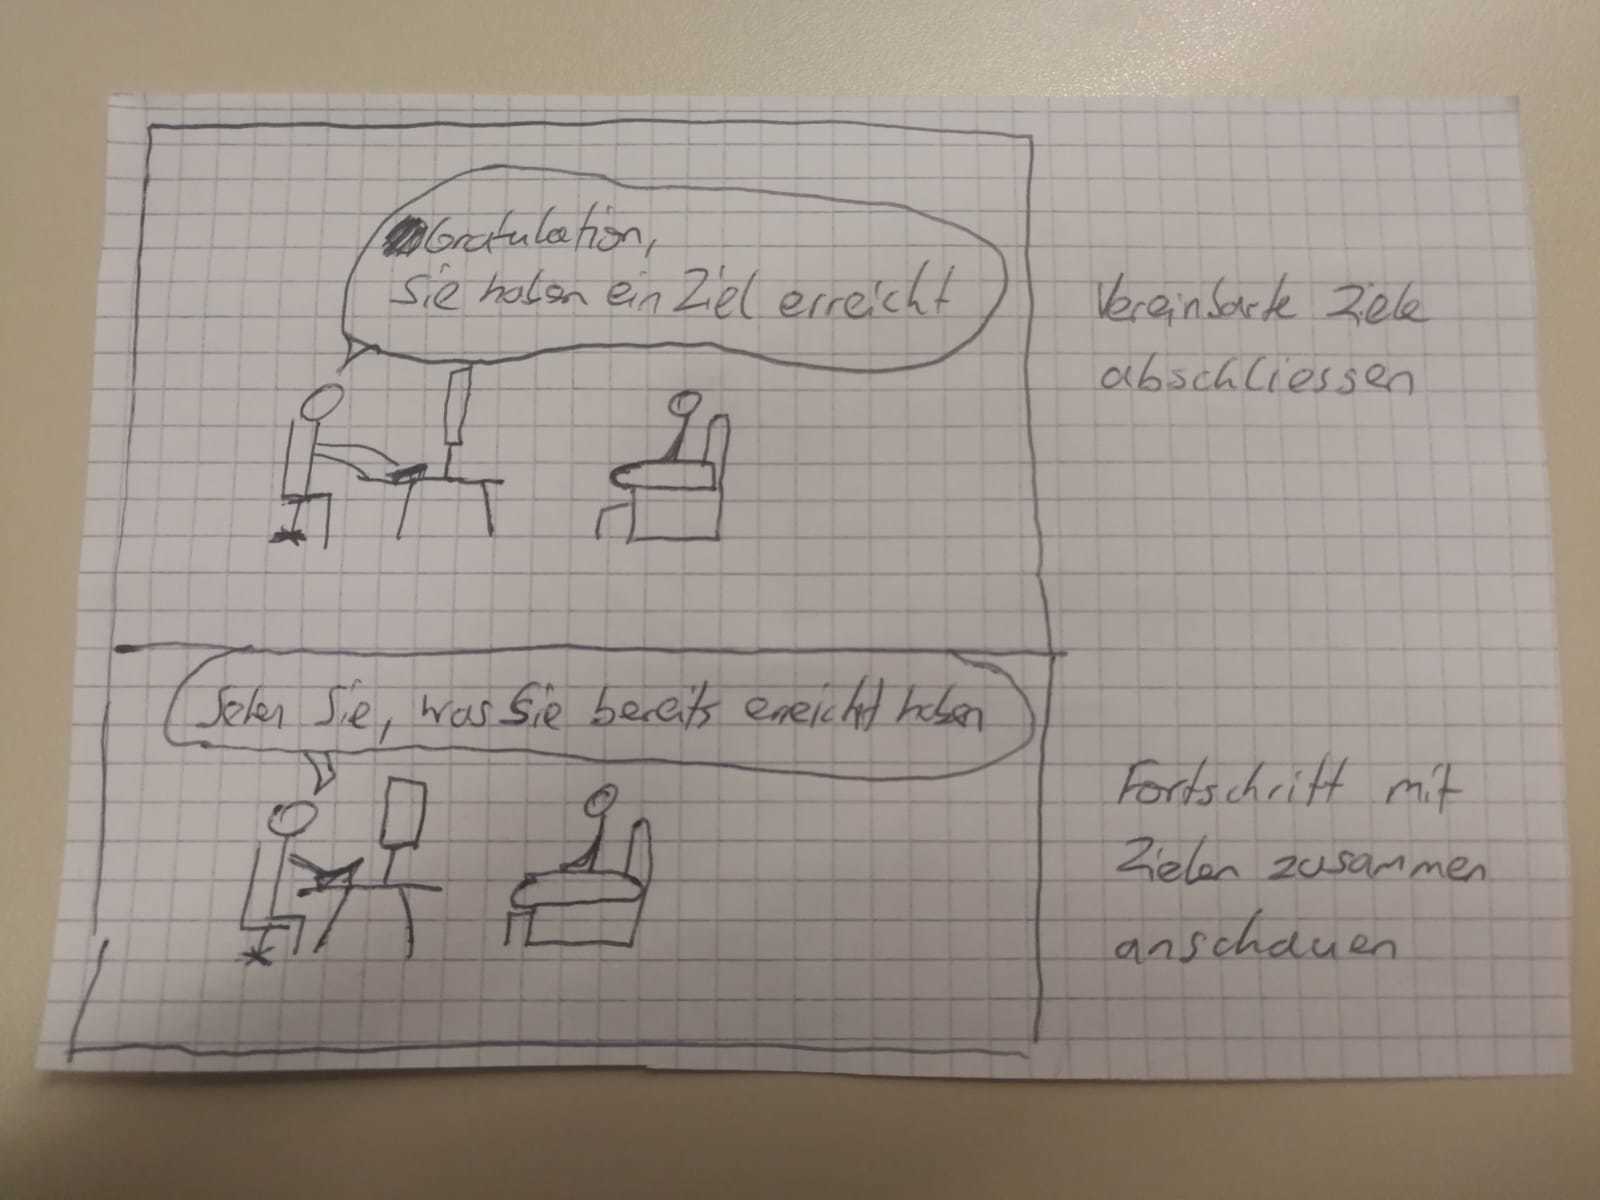 Gratulation,
Sie haben ein Ziel erreicht
Vereinbarte Ziele
abschliessen
Sehen Sie, was Sie bereits erreicht haben
Fortschritt mit
Zielen zusammen
anschauen